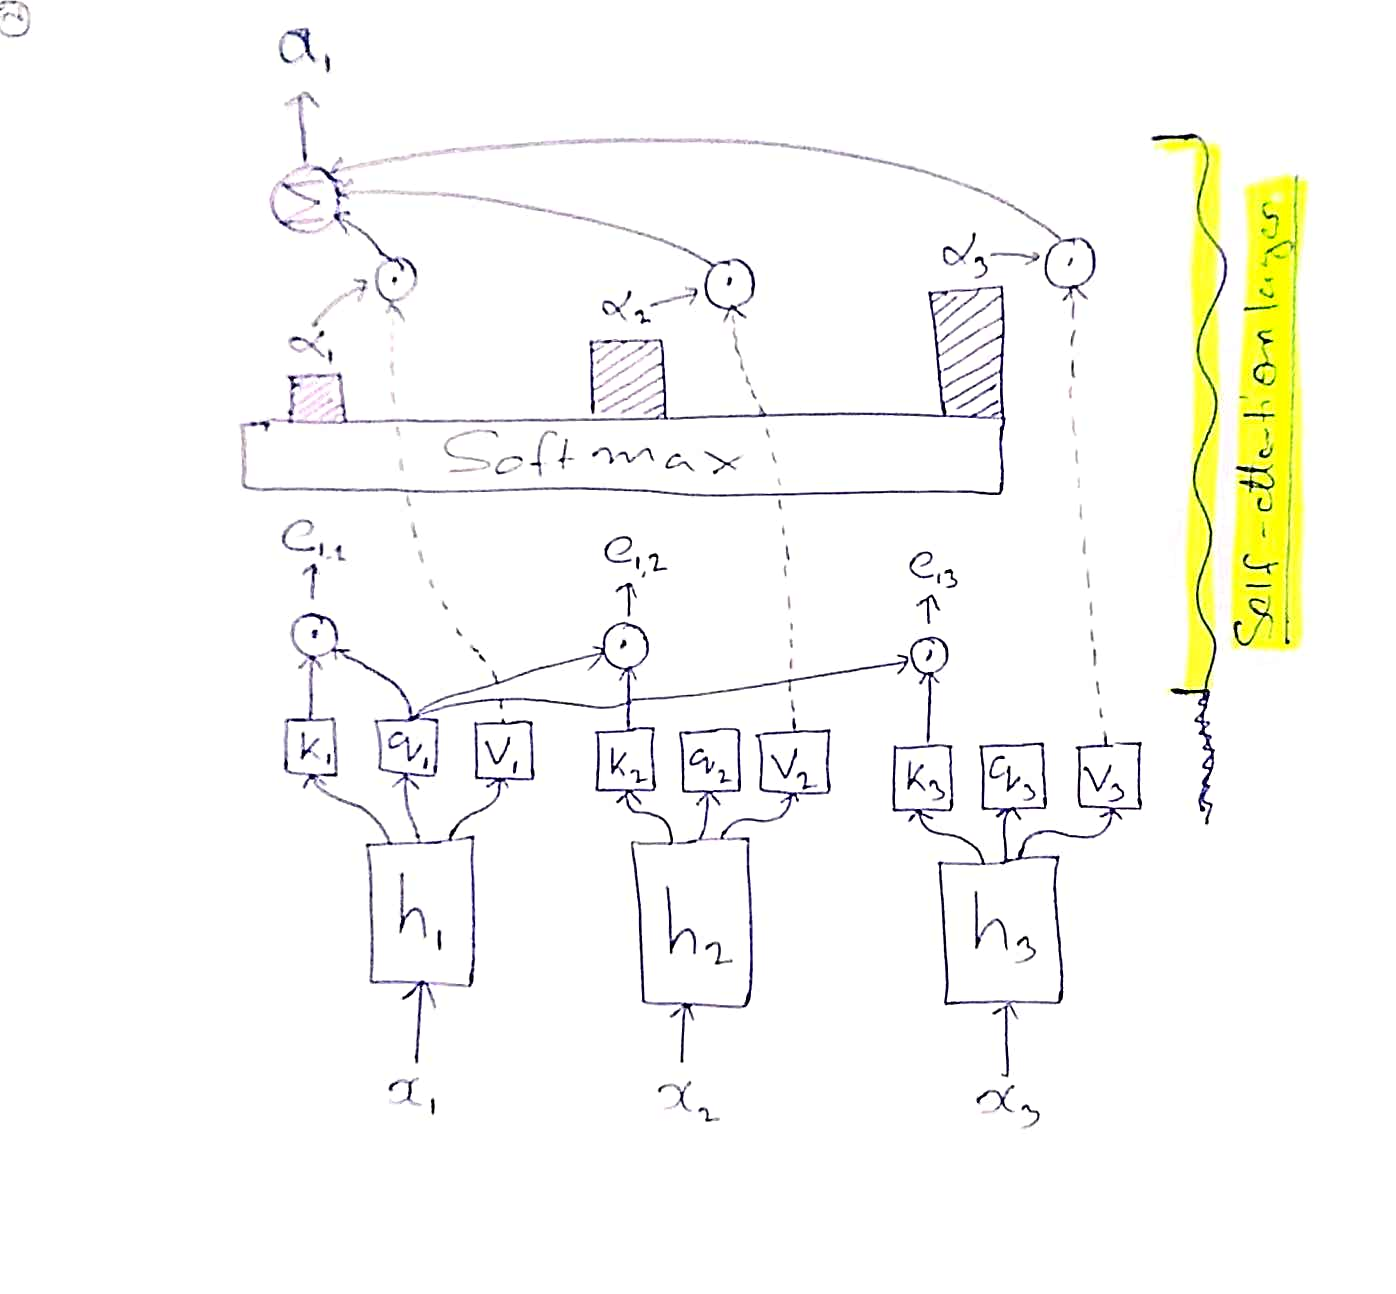 2
a₁
Σ
α₃
α₂
α₁
Softmax
e₁,₁
e₁,₂
e₁₃
k₁ q₁ v₁
k₂ q₂ v₂
k₃ q₃ v₃
h₁ h₂ h₃
x₁ x₂ x₃
Self-attention layer